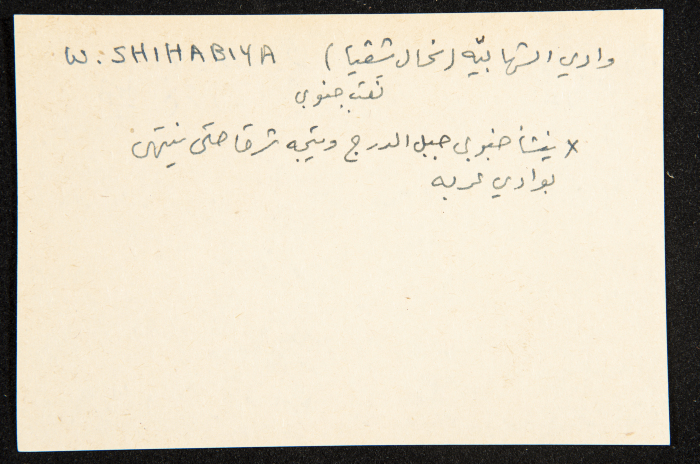 وادي الشهابيّه (نحال شقيا) W. SHIHABIYA
نقب جنوبي
x ينشأ جنوبي جبل الدرج ويتجه شرقا حتى ينتهي
بوادي عربه